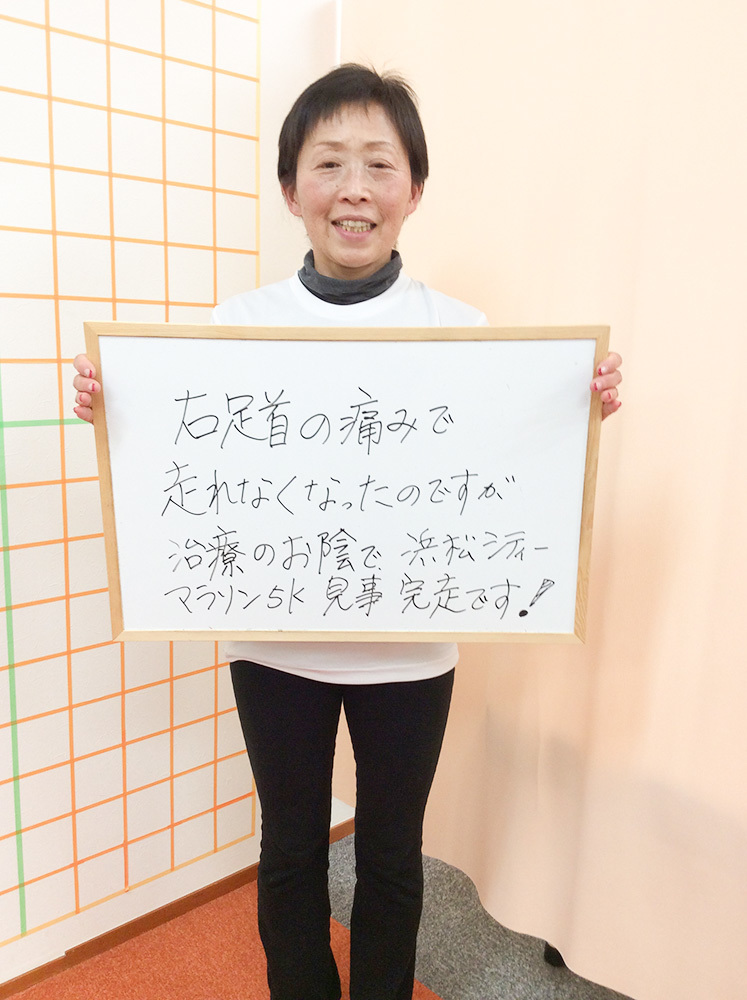 右足首の痛みで
走れなくなったのですが
治療のお陰で、浜松シティー
マラソン5K 見事 完走です!